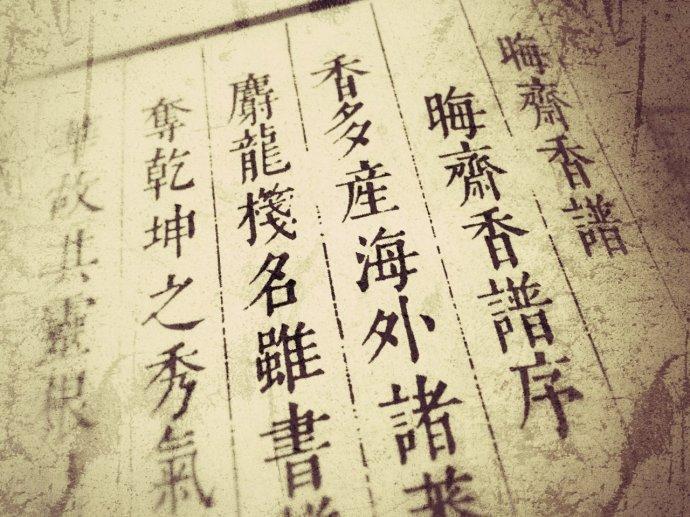 晦齋香譜
晦齋香譜序
香多產海外諸蕃
麝龍棧名雖書譜
奪乾坤之秀氣
故其靈根